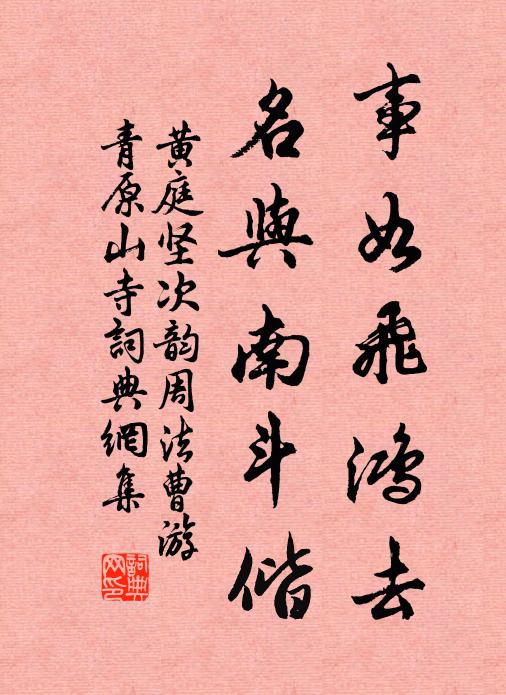 事如飛鴻去
名與南斗偕
黄庭坚次韵周法曹游
青原山寺詞典網集
詞典網印